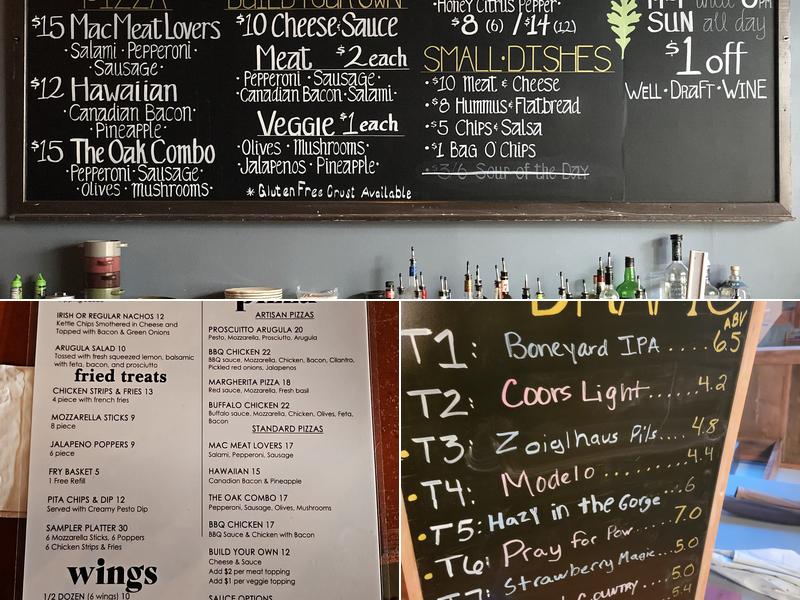 PIZZA
$15 Mac Meat Lovers
• Salami • Pepperoni •
Sausage •
$12 Hawaiian
• Canadian Bacon •
• Pineapple •
$15 The Oak Combo
• Pepperoni • Sausage •
• Olives • Mushrooms •
BUILD YOUR OWN
$10 Cheese & Sauce
Meat $2 each
• Pepperoni • Sausage •
• Canadian Bacon • Salami •
Veggie $1 each
• Olives • Mushrooms •
• Jalapenos • Pineapple •
* Gluten Free Crust Available
• Honey Citrus Pepper •
$8 (6) / $14 (12)
SMALL • DISHES
• $10 Meat & Cheese
• $8 Hummus & Flatbread
• $5 Chips & Salsa
• $1 Bag O' Chips
• $3/6 Soup of the Day
M-F until 6PM
SUN all day
$1 off
WELL • DRAFT • WINE
IRISH OR REGULAR NACHOS 12
Kettle Chips Smothered in Cheese and
Topped with Bacon & Green Onions
ARUGULA SALAD 10
Tossed with fresh squeezed lemon, balsamic
with feta, bacon, and prosciutto
fried treats
CHICKEN STRIPS & FRIES 13
4 piece with french fries
MOZZARELLA STICKS 9
8 piece
JALAPENO POPPERS 9
6 piece
FRY BASKET 5
1 Free Refill
PITA CHIPS & DIP 12
Served with Creamy Pesto Dip
SAMPLER PLATTER 30
6 Mozzarella Sticks, 6 Poppers
6 Chicken Strips & Fries
wings
1/2 DOZEN (6 wings) 10
ARTISAN PIZZAS
PROSCUITTO ARUGULA 20
Pesto, Mozzarella, Prosciutto, Arugula
BBQ CHICKEN 22
BBQ sauce, Mozzarella, Chicken, Bacon, Cilantro,
Pickled red onions, Jalapenos
MARGHERITA PIZZA 18
Red sauce, Mozzarella, Fresh basil
BUFFALO CHICKEN 22
Buffalo sauce, Mozzarella, Chicken, Olives, Feta,
Bacon
STANDARD PIZZAS
MAC MEAT LOVERS 17
Salami, Pepperoni, Sausage
HAWAIIAN 15
Canadian Bacon & Pineapple
THE OAK COMBO 17
Pepperoni, Sausage, Olives, Mushrooms
BBQ CHICKEN 17
BBQ Sauce & Chicken with Bacon
BUILD YOUR OWN 12
Cheese & Sauce
Add $2 per meat topping
Add $1 per veggie topping
SAUCE OPTIONS
ABV
T1: Boneyard IPA ..... 6.5
T2: Coors Light ...... 4.2
T3: Zoiglhaus Pils .... 4.8
T4: Modelo ........ 4.4
T5: Hazy in the Gorge ... 6
T6: Pray for Pow ..... 7.0
T7: Strawberry Magic ... 5.0
Country .... 5.0
5.4